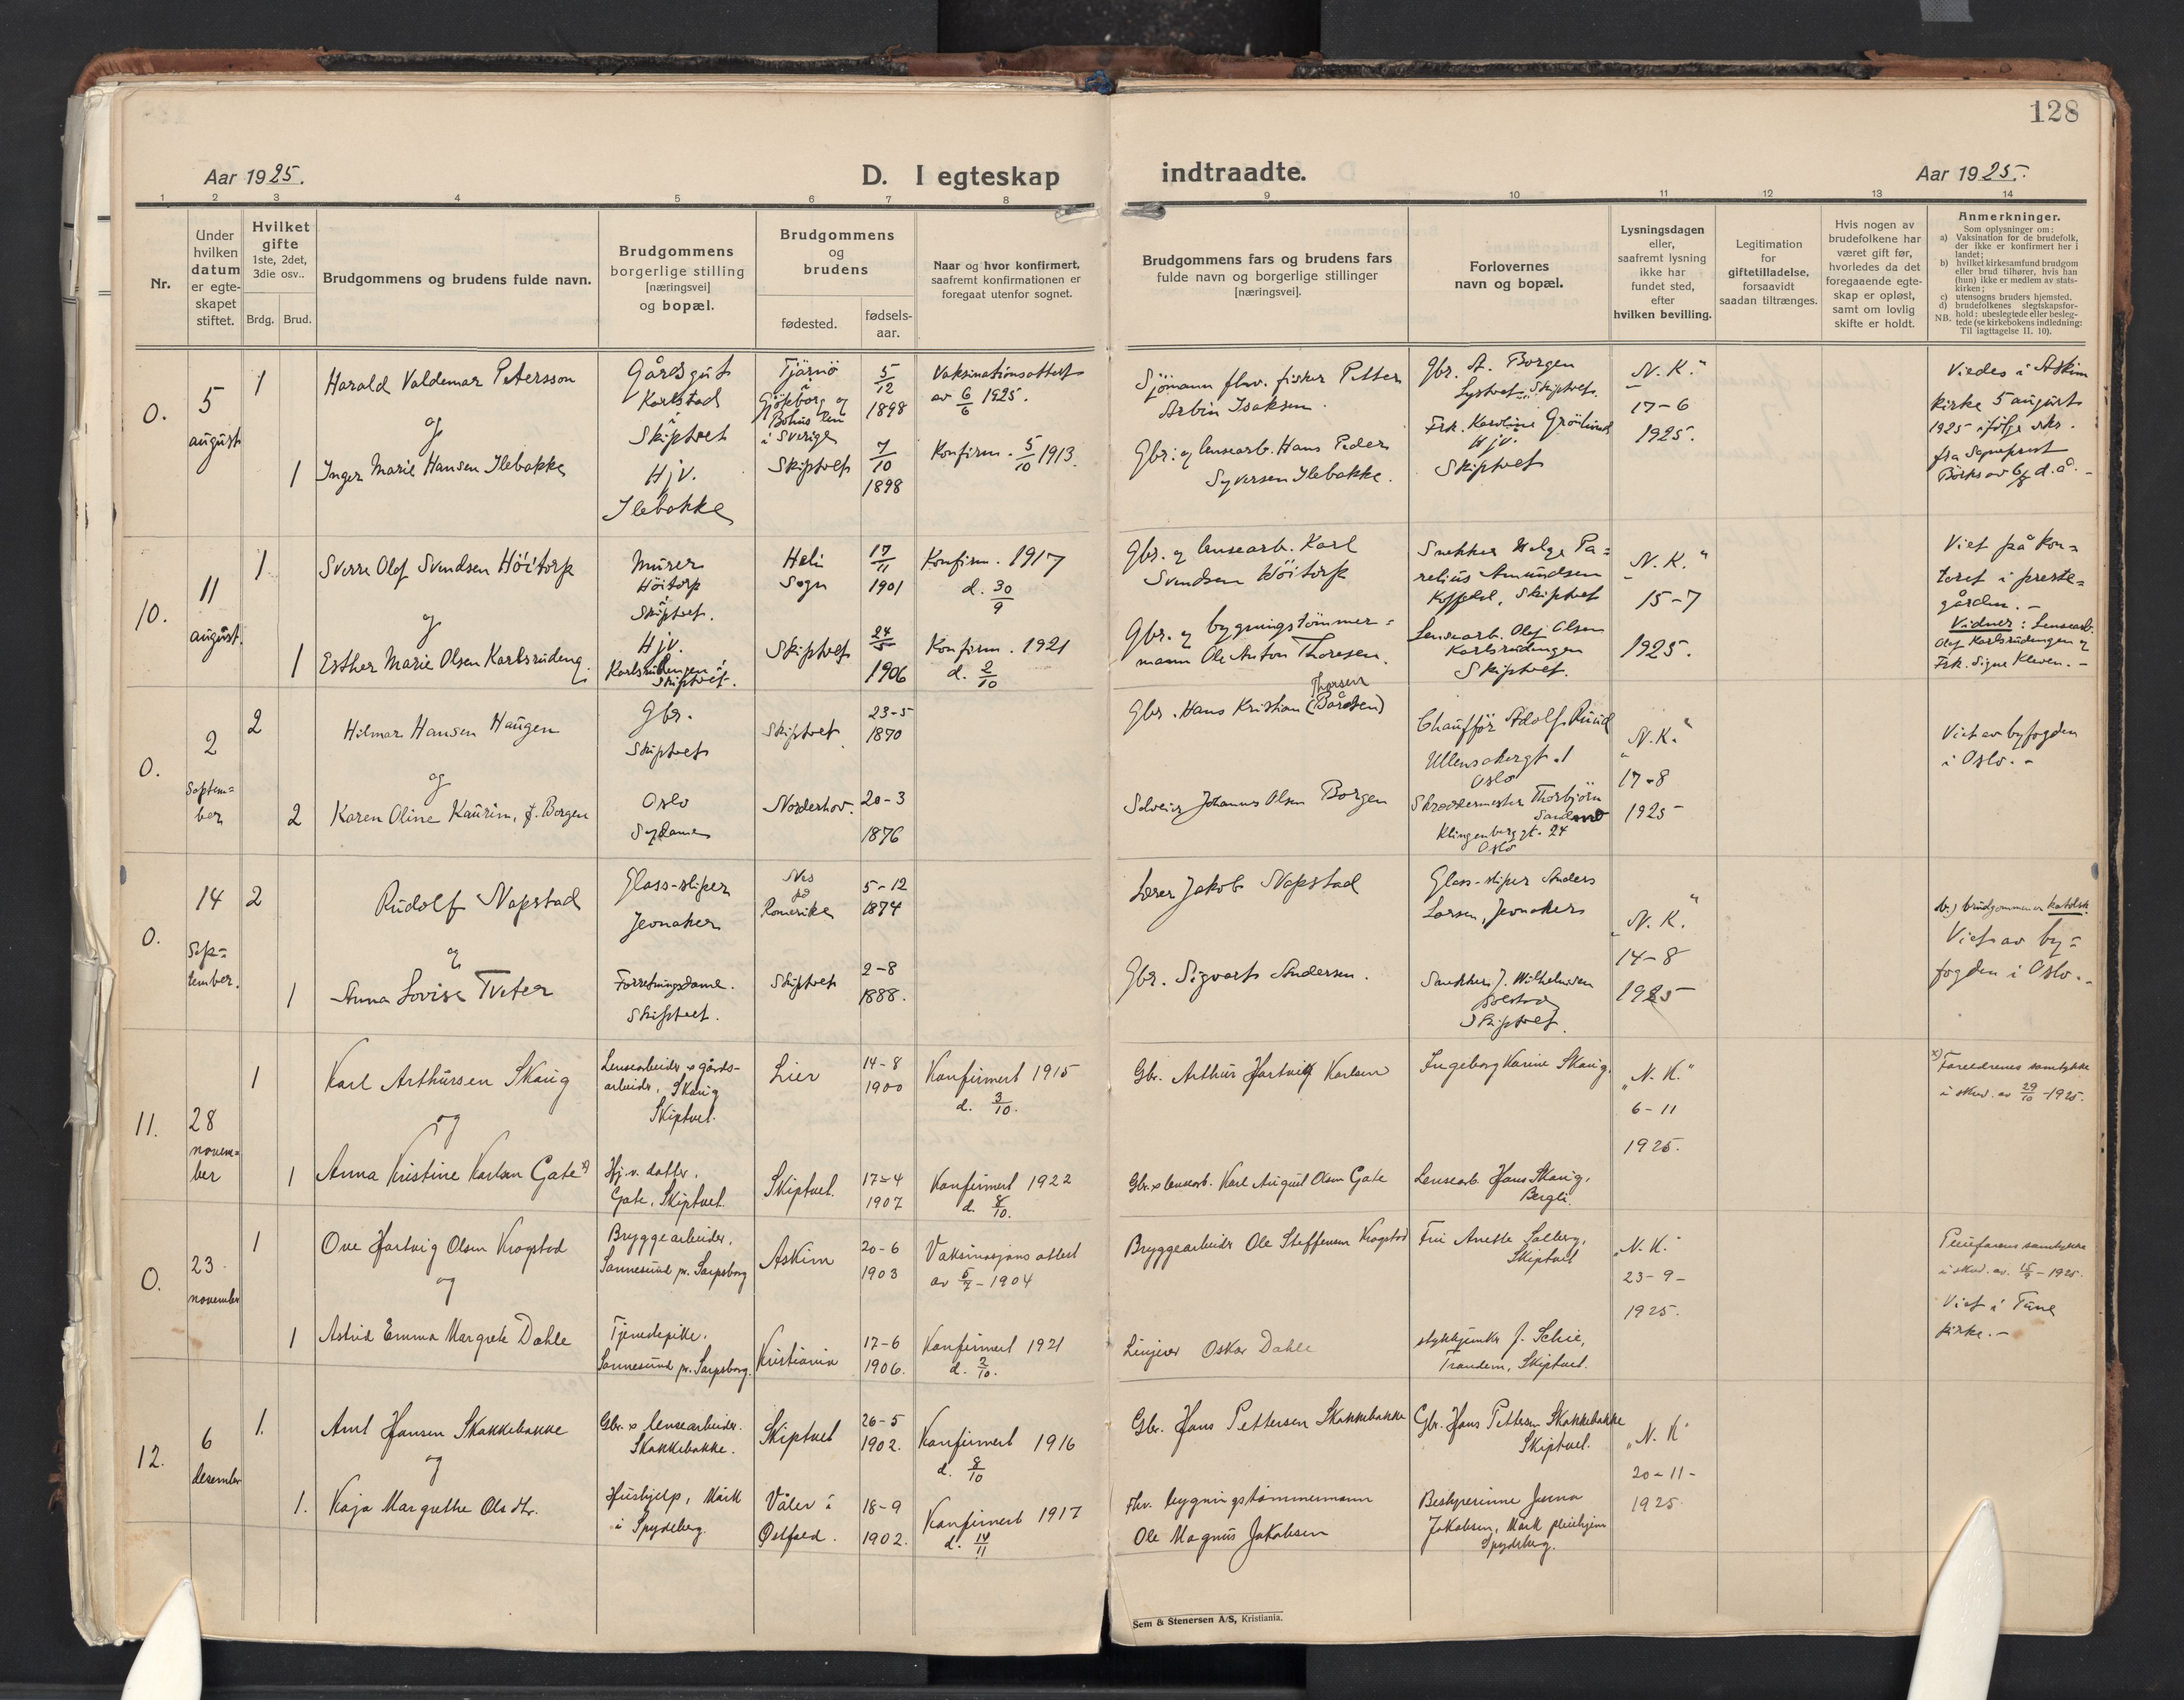 128
Aar 1925.
D. I egteskap indtraadte.
Aar 1925.
1 2 3 4 5 6 7 8 9 10 11 12 13 14
Nr.
Under hvilken datum er egte-skapet stiftet.
Hvilket gifte 1ste, 2det, 3die osv..
Brdg. Brud.
Brudgommens og brudens fulde navn.
Brudgommens borgerlige stilling [næringsvei] og bopæl.
Brudgommens og brudens
fødested.
fødsels-aar.
Naar og hvor konfirmert, saafremt konfirmationen er foregaat utenfor sognet.
Brudgommens fars og brudens fars fulde navn og borgerlige stillinger [næringsvei].
Forlovernes navn og bopæl.
Lysningsdagen eller, saafremt lysning ikke har fundet sted, efter hvilken bevilling.
Legitimation for giftetilladelse, forsaavidt saadan tiltrænges.
Hvis nogen av brudefolkene har været gift før, hvorledes da det foregaaende egte-skap er opløst, samt om lovlig skifte er holdt.
Anmerkninger.
Som oplysninger om:
a) Vaksination for de brudefolk, der ikke er konfirmert her i landet;
b) hvilket kirkesamfund brudgom eller brud tilhører, hvis han (hun) ikke er medlem av stats-kirken;
c) utensogns bruders hjemsted.
d) brudefolkenes slegtskapsfor-hold; ubeslegtede eller besleg-tede (se kirkebokens indledning:
NB. Til iagttagelse II. 10).
0.
5 august
1
Harald Valdemar Petersson
og
1
Inger Marie Hansen Ilebakke
Gårdsgut
Karlstad
i
Skiptvet
Hjv.
Ilebakke
Tjärnö
Göteborg og
Bohus len
i Sverige
Skiptvet
5/12 1898
7/10 1898
Vaksinationsattest
av 6/6 1925.
Konfirm. 5/10 1913.
Sjömann fhv. fisker Petter
Arbin Isaksen.
Gbr. og lensearb. Hans Peder
Syversen Ilebakke.
Gbr. A. Borgen
Skiptvet.
Frk. Karoline
Hjv.
Skiptvet
"N. K."
17-6
1925.
Viedes i Askim
kirke 5 august
1925 ifølge skr.
fra Sogneprest
10.
11 august.
1
Sverre Olof Svendsen Höitorp
og
1
Esther Marie Olsen Karlsrudeng.
Murer
Höitorp
i
Skiptvet.
Hjv.
Karlsrudengen i
Skiptvet.
Heli
Sogn
Skiptvet
17/11 1901
24/5 1906
Konfirm. 1917
d. 30/9
Konfirm. 1921
d. 2/10
Gbr. og lensearb. Karl
Svendsen Höitorp
Gbr. og bygningstömmer=
mann Ole Anton Thoresen.
Snekker Helge Pa=
relius Amundsen
Skiptvet
Lensearb. Olof Olsen
Karlsrudengen
Skiptvet.
"N. K."
15-7
1925.
Viet på kon=
toret i preste=
gården. -
Vidner: Lensearb.
Olof Karlsrudengen og
Frk. Signe Kleven. -
0.
2 Septem=
ber
2
Hilmar Hansen Haugen
og
2
Karen Oline Kaurin, f. Borgen
Gbr.
Skiptvet
Oslo
Sydame
Skiptvet
Norderhov.
23-5
1870
20-3
1876
Gbr. Hans Kristian (Bårdsen)
Thorsen
Johannes Olsen Borgen
Chaufför Adolf Ruud
1
Oslo
Skreddermester Thorbjörn
Klingenberggt. 24
Oslo
"N.K."
17-8
1925
Viet av byfogden
i Oslo. -
0.
14
Sep=
tember.
2
Rudolf Napstad
og
1
Anna Lovise Tveter
Glass-sliper
Jevnaker
Forretningsdame.
Skiptvet.
Nes
på
Romerike
Skiptvet
5-12
1874
2-8
1888.
Lærer Jakob Napstad
Gbr. Sigvart Andersen.
Glass-sliper Anders
Larsen, Jevnaker
Snekker J. Wilhelmsen
Solstad
Skiptvet.
"N. K."
14-8
1925
b.) brudgommen er katolsk.
Viet av by=
fogden i Oslo. -
11.
28
novem=
ber
1
Karl Arthursen Skaug
og
1
Anna Kristine Karlsen Gate x)
Lensearbeider & gårds-
arbeider, Skaug
Skiptvet.
Hj.v. datter,
Gate, Skiptvet.
Lier
Skiptvet.
14-8
1900
17-4
1907
Konfirmert 1915
d. 3/10.
Konfirmert 1922
d. 8/10.
Gbr. Arthur Hartvig Karlsen
Gbr. & lensearb. Karl August Olsen Gate
Ingeborg Karine Skaug.
Lensearb. Hans Skaug,
Bergli.
"N. K."
6-11
1925.
x) Foreldrenes samtykke
i skrd. av 29/10-1925.
0.
23.
november
1
Ove Hartvig Olsen Krogstad
og
1
Astrid Emma Margrete Dahle
Bryggearbeider,
Sannesund pr. Sarpsborg
Tjenestepike.
Sannesund pr. Sarpsborg.
Askim
Kristiania
20-6
1903
17-6
1906.
Vaksinasjonsattest
av 5/7-1904
Konfirmert 1921
d. 2/10.
Bryggearbeider Ole Steffensen Krogstad
Linjeier Oskar Dahle
Fru Anette Solberg,
Skiptvet
J. Schie,
Trandem, Skiptvet.
"N. K."
23-9-
1925.
Pleiefarens samtykke
Viet i Tune
kirke. -
12.
6
desember
1.
Arnt Hansen Skakkebakke
og
1.
Kaja Margrethe Olsdtr.
Gbr. & lensearbeider.
Skakkebakke.
Hushjelp, Mörk
i Spydeberg.
Skiptvet
Våler i
Östfold.
26-5
1902.
18-9
1902.
Konfirmert 1916
d. 8/10
Konfirmert 1917
d. 14/11
Gbr. Hans Pettersen Skakkebakke
Fhv. bygningstömmermann
Ole Magnus Jakobsen
Gbr. Hans Pettersen Skakkebakke
Skiptvet.
Bestyrerinne
Jakobsen, Mörk pleiehjem
Spydeberg.
"N. K"
20-11-
1925.
Sem & Stenersen A/S, Kristiania.